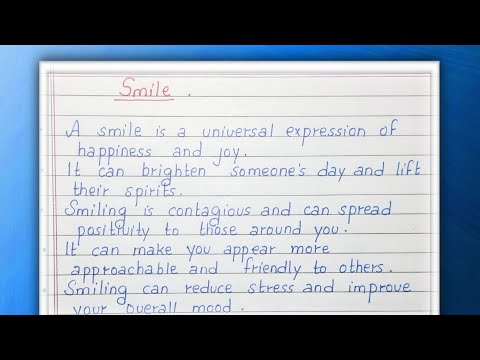 Smile .
A smile is a universal expression of
happiness and joy.
It can brighten someone's day and lift
their spirits.
Smiling is contagious and can spread
positivity to those around you.
It can make you appear more
approachable and friendly to others.
Smiling can reduce stress and improve
your overall mood.